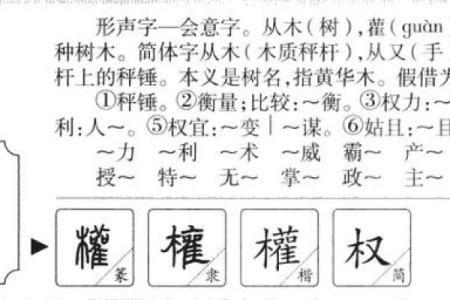 形声字—会意字。从木(树),雚(guàn)
种树木。简体字从木(木质秤杆),从又(手
杆上的秤锤。本义是树名,指黄华木。假借为
①秤锤。②衡量;比较:~衡。③权力:~
利:人~。⑤权宜:~变|~谋。⑥姑且:~且
~力 ~利 ~术 ~威 霸~ 产~
授~ 特~ 无~ 掌~ 政~ 主~
權 權 權 权
篆 隶 楷 简